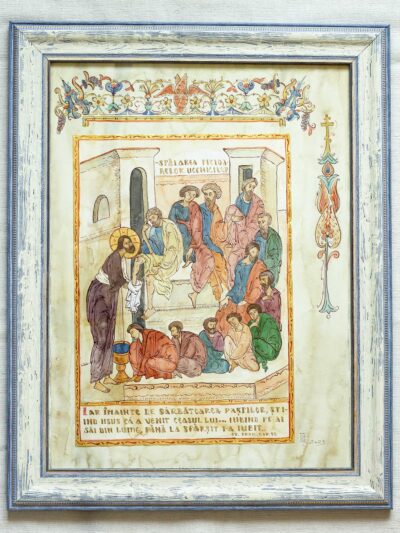 SPĂLAREA PICIOA
RELOR UCENICILOR
IAR ÎNAINTE DE SĂRBĂTOAREA PAȘTILOR, ȘTI
IND IISUS CĂ A VENIT CEASUL LUI... IUBIND PE AI
SĂI DIN LUME, PÂNĂ LA SFÂRȘIT I-A IUBIT.
IOAN CAP.